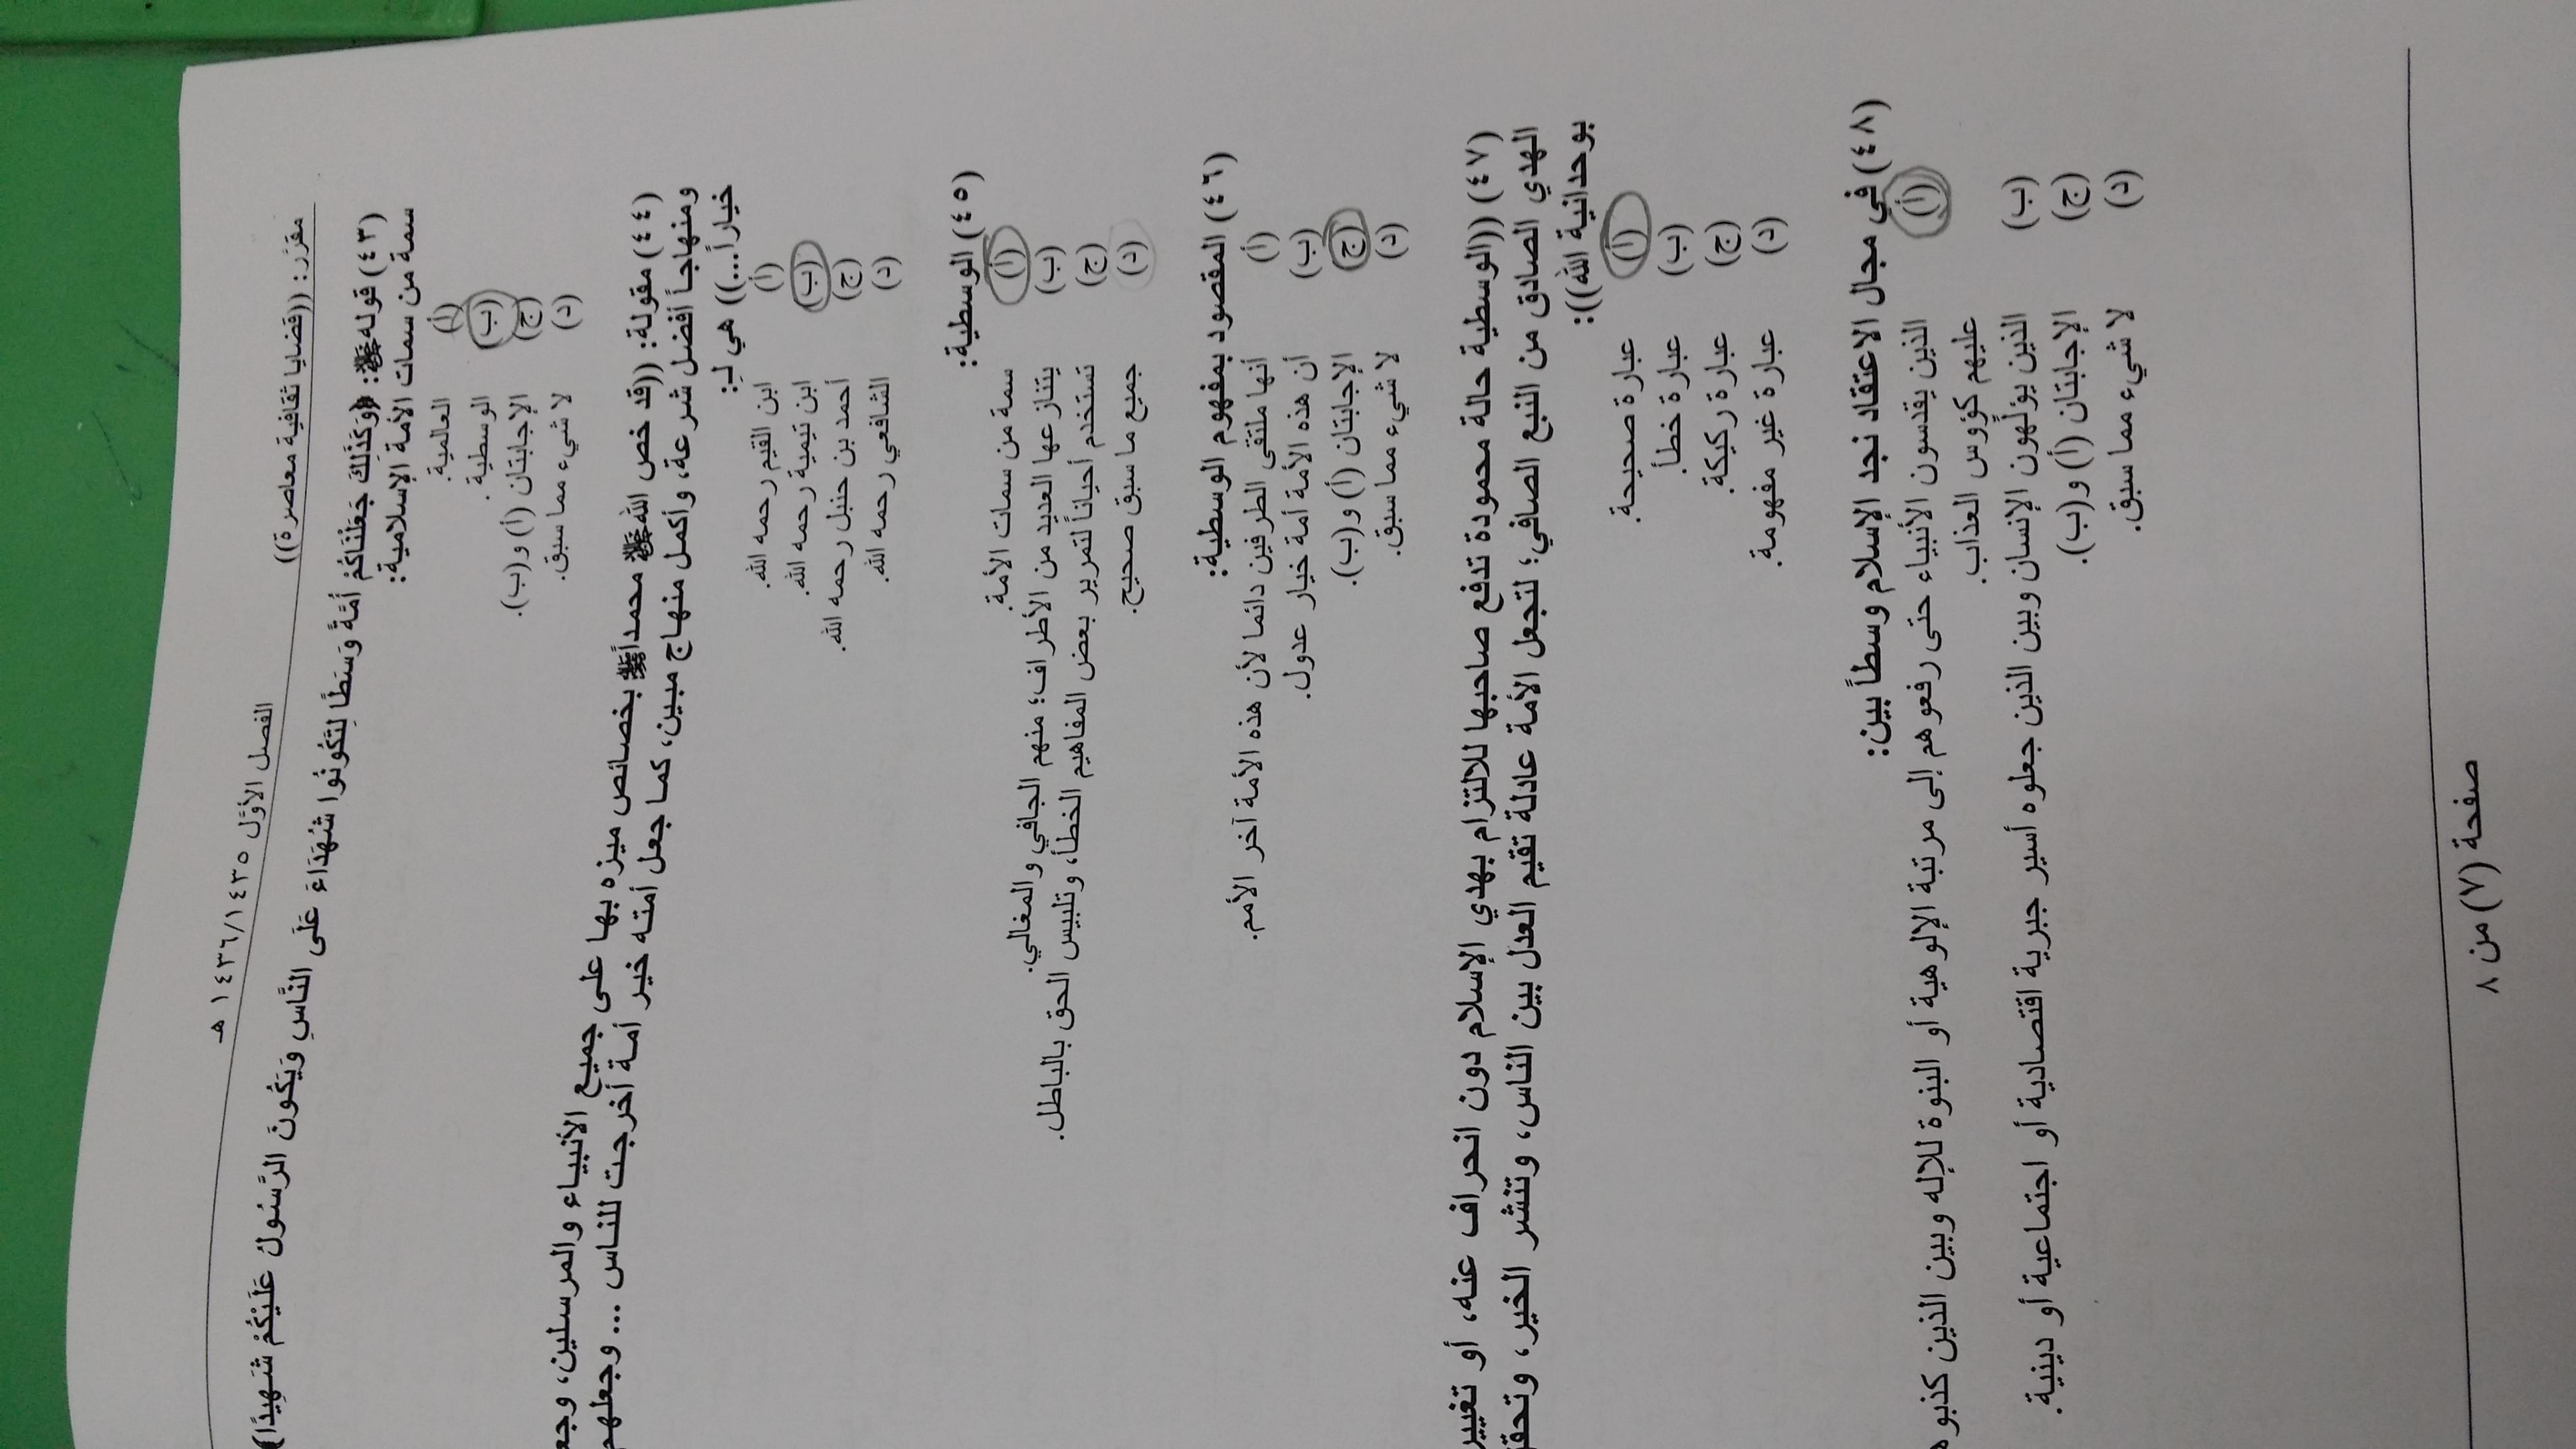 مقرَر: ((قضايا ثقافية معاصرة)) الفصل الأوَّل ١٤٣٦/١٤٣٥ هـ
(٤٣) قوله ﷺ: ﴿وَكَذَٰلِكَ جَعَلْنَاكُمْ أُمَّةً وَسَطًا لِتَكُونُوا شُهَدَاءَ عَلَى النَّاسِ وَيَكُونَ الرَّسُولُ عَلَيْكُمْ شَهِيدًا﴾
سمة من سمات الأمة الإسلامية:
(أ) العالمية.
(ب) الوسطية.
(ج) الإجابتان (أ) و(ب).
(د) لا شيء مما سبق.
(٤٤) مقولة: ((قد خص الله ﷻ محمداً ﷺ بخصائص ميزه بها على جميع الأنبياء والمرسلين، وجعل
ومنهاجاً أفضل شرعة، وأكمل منهاج مبين، كما جعل أمته خير أمة أخرجت للناس ... وجعلهم
خياراً...)) هي لـِ:
(أ) ابن القيم رحمه الله.
(ب) ابن تيمية رحمه الله.
(ج) أحمد بن حنبل رحمه الله.
(د) الشافعي رحمه الله.
(٤٥) الوسطية:
(أ) سمة من سمات الأمة.
(ب) يتنازعها العديد من الأطراف؛ منهم الجافي والمغالي.
(ج) تستخدم أحياناً لتمرير بعض المفاهيم الخطأ، وتلبيس الحق بالباطل.
(د) جميع ما سبق صحيح.
(٤٦) المقصود بمفهوم الوسطية:
(أ) أنها ملتقى الطرفين دائما لأن هذه الأمة آخر الأمم.
(ب) أن هذه الأمة أمة خيار عدول.
(ج) الإجابتان (أ) و(ب).
(د) لا شيء مما سبق.
(٤٧) ((الوسطية حالة محمودة تدفع صاحبها للالتزام بهدي الإسلام دون انحراف عنه، أو تغيير
الهدي الصادق من النبع الصافي؛ لتجعل الأمة عادلة تقيم العدل بين الناس، وتنشر الخير، وتحقق
بوحدانية الله)):
(أ) عبارة صحيحة.
(ب) عبارة خطأ.
(ج) عبارة ركيكة.
(د) عبارة غير مفهومة.
(٤٨) في مجال الاعتقاد نجد الإسلام وسطاً بين:
(أ) الذين يقدسون الأنبياء حتى رفعوهم إلى مرتبة الإلوهية أو البنوة للإله وبين الذين كذبوهم
عليهم كؤوس العذاب.
(ب) الذين يؤلِّهون الإنسان وبين الذين جعلوه أسير جبرية اقتصادية أو اجتماعية أو دينية.
(ج) الإجابتان (أ) و(ب).
(د) لا شيء مما سبق.
صفحة (٧) من ٨